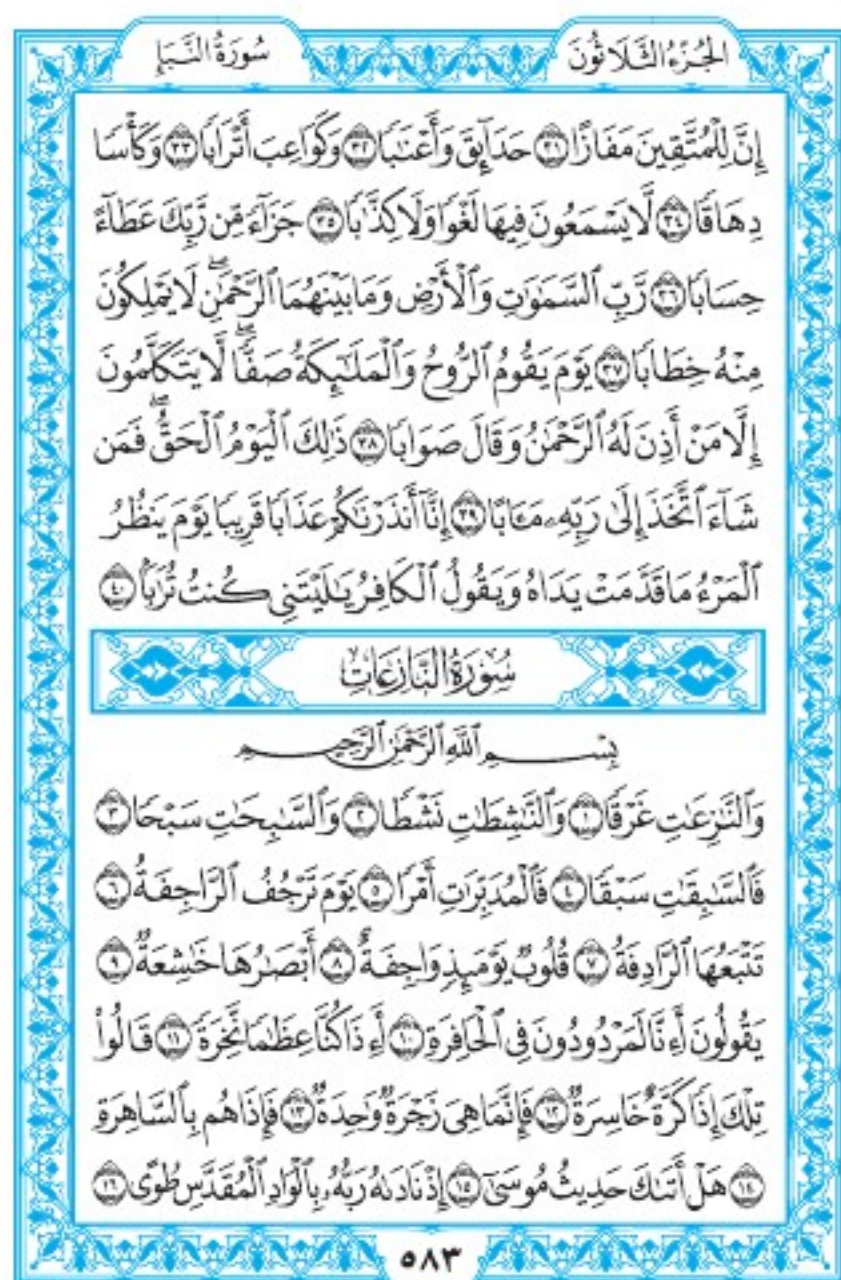 سُورَةُ النَّبَإِ
الجُزْءُ الثَّلَاثُونَ
إِنَّ لِلْمُتَّقِينَ مَفَازًا ٣١ حَدَآئِقَ وَأَعْنَٰبًا ٣٢ وَكَوَاعِبَ أَتْرَابًا ٣٣ وَكَأْسًا
دِهَاقًا ٣٤ لَّا يَسْمَعُونَ فِيهَا لَغْوًا وَلَا كِذَّٰبًا ٣٥ جَزَآءً مِّن رَّبِّكَ عَطَآءً
حِسَابًا ٣٦ رَّبِّ ٱلسَّمَٰوَٰتِ وَٱلْأَرْضِ وَمَا بَيْنَهُمَا ٱلرَّحْمَٰنِ ۖ لَا يَمْلِكُونَ
مِنْهُ خِطَابًا ٣٧ يَوْمَ يَقُومُ ٱلرُّوحُ وَٱلْمَلَٰٓئِكَةُ صَفًّا ۖ لَّا يَتَكَلَّمُونَ
إِلَّا مَنْ أَذِنَ لَهُ ٱلرَّحْمَٰنُ وَقَالَ صَوَابًا ٣٨ ذَٰلِكَ ٱلْيَوْمُ ٱلْحَقُّ ۖ فَمَن
شَآءَ ٱتَّخَذَ إِلَىٰ رَبِّهِۦ مَـَٔابًا ٣٩ إِنَّآ أَنذَرْنَٰكُمْ عَذَابًا قَرِيبًا يَوْمَ يَنظُرُ
ٱلْمَرْءُ مَا قَدَّمَتْ يَدَاهُ وَيَقُولُ ٱلْكَافِرُ يَٰلَيْتَنِى كُنتُ تُرَٰبًۢا ٤٠
سُورَةُ النَّازِعَاتِ
بِسْمِ ٱللَّهِ ٱلرَّحْمَٰنِ ٱلرَّحِيمِ
وَٱلنَّٰزِعَٰتِ غَرْقًا ١ وَٱلنَّٰشِطَٰتِ نَشْطًا ٢ وَٱلسَّٰبِحَٰتِ سَبْحًا ٣
فَٱلسَّٰبِقَٰتِ سَبْقًا ٤ فَٱلْمُدَبِّرَٰتِ أَمْرًا ٥ يَوْمَ تَرْجُفُ ٱلرَّاجِفَةُ ٦
تَتْبَعُهَا ٱلرَّادِفَةُ ٧ قُلُوبٌ يَوْمَئِذٍ وَاجِفَةٌ ٨ أَبْصَٰرُهَا خَٰشِعَةٌ ٩
يَقُولُونَ أَءِنَّا لَمَرْدُودُونَ فِى ٱلْحَافِرَةِ ١٠ أَءِذَا كُنَّا عِظَٰمًا نَّخِرَةً ١١ قَالُوا۟
تِلْكَ إِذًا كَرَّةٌ خَاسِرَةٌ ١٢ فَإِنَّمَا هِىَ زَجْرَةٌ وَٰحِدَةٌ ١٣ فَإِذَا هُم بِٱلسَّاهِرَةِ
١٤ هَلْ أَتَىٰكَ حَدِيثُ مُوسَىٰٓ ١٥ إِذْ نَادَىٰهُ رَبُّهُۥ بِٱلْوَادِ ٱلْمُقَدَّسِ طُوًى ١٦
٥٨٣